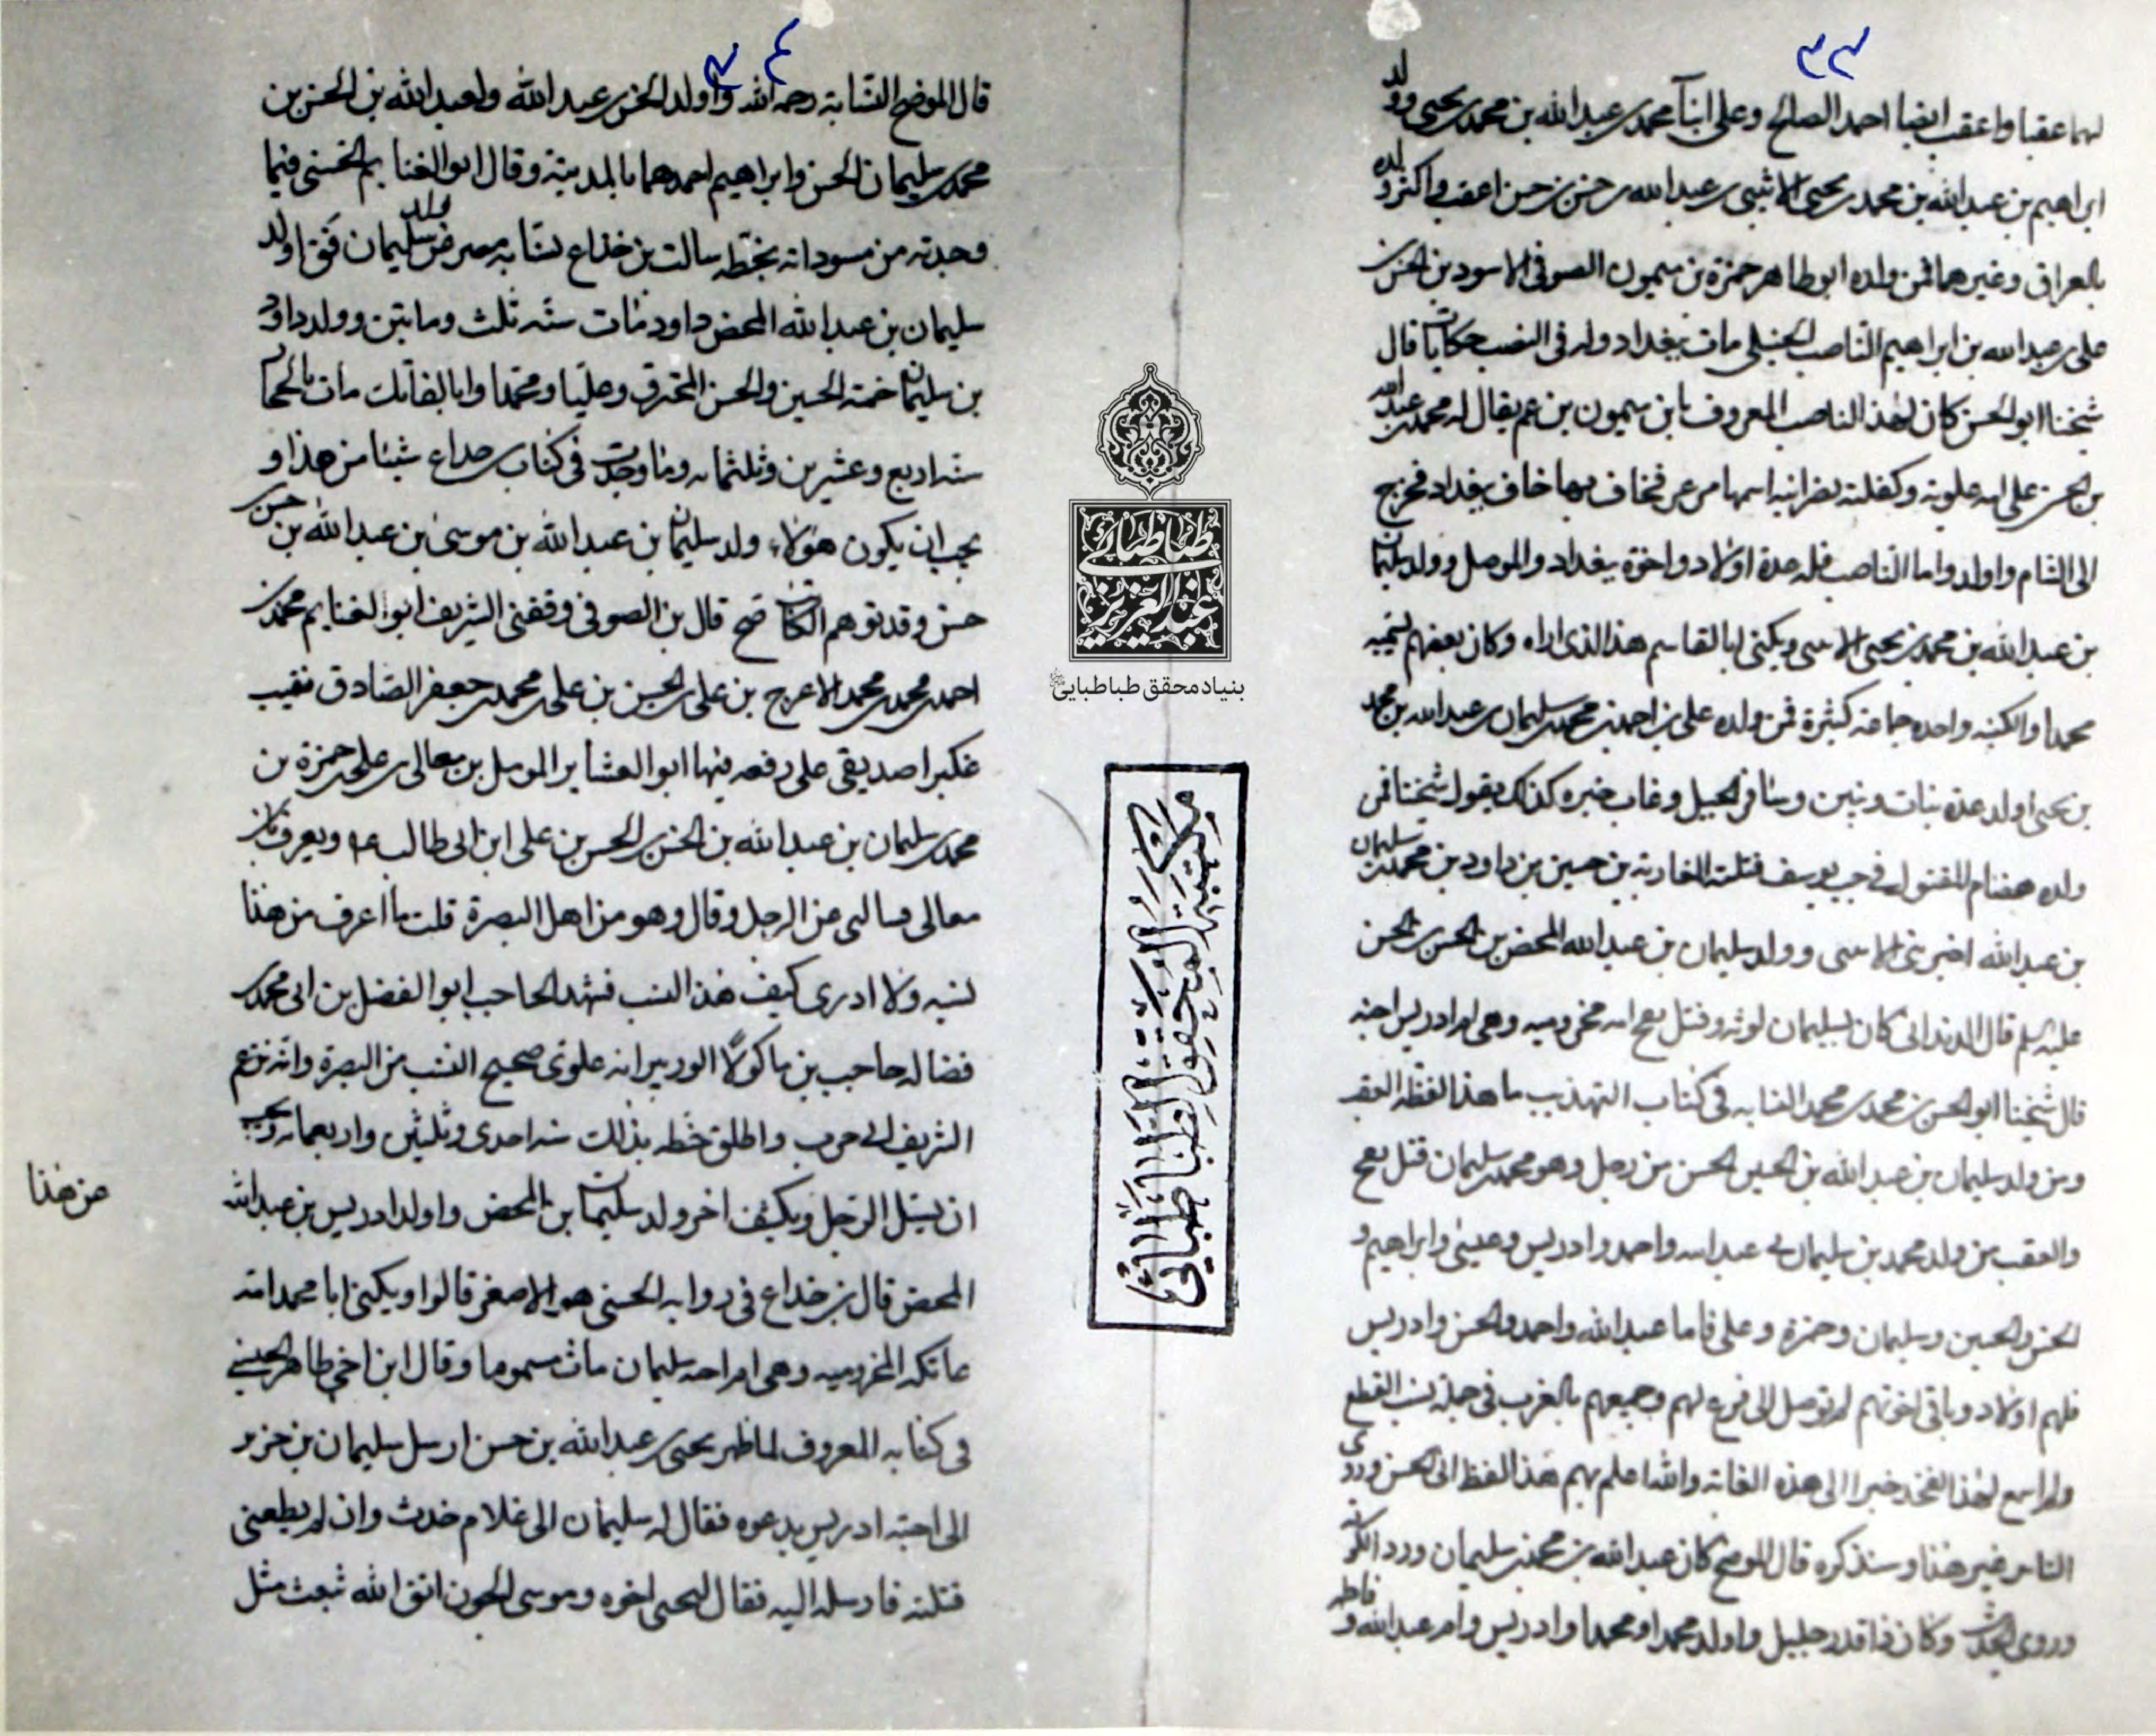 ٣٣
لهما عقبا واعقب ايضا احمد الصالح وعلى ابنا محمد بن عبدالله بن محمد بن يحيى وولد
ابراهيم بن عبدالله بن محمد بن يحيى الاثبى بن عبدالله بن حسن بن حسن اعقب واكثر ولده
بالعراق وغيرها فمن ولده ابو طاهر حمزة بن ميمون الصوفى الاسود بن الحسن بن
على بن عبدالله بن ابراهيم الناصب الحنبلى مات ببغداد وله فى النصب حكايات قال
شيخنا ابو الحسن كان لهذا الناصب المعروف بابن ميمون بن عم يقال له محمد بن عبدالله
بن الحسن على امه علوية وكفلته نصرانية اسمها مرعر فخاف بها خاف ببغداد فخرج
الى الشام واولد واما الناصب فله عدة اولاد واخوة ببغداد والموصل وولد سليمان
بن عبدالله بن محمد بن يحيى الاسى ويكنى ابا القاسم هذا الذى اراه وكان بعضهم يسميه
محمدا والكنيه واحده جماعة كثيرة فمن ولده على بن احمد بن محمد بن سليمان بن عبدالله بن محمد
بن يحيى اولد عدة بنات وبنين وسافر الجبل وغاب خبره كذلك يقول شيخنا فمن
ولده هضام المقتول فى جب يوسف قتلته المغاربة بن حسين بن داود بن محمد بن سليمان
بن عبدالله اخبرنى الاسى وولد سليمان بن عبدالله المحض بن الحسن بن الحسن
عليه السلم قال الدندانى كان لسليمان لوثه وقتل بفخ امه مخزوميه وهى ام ادريس اخيه
قال شيخنا ابو الحسن بن محمد بن محمد النسابه فى كتاب التهذيب ما هذا لفظه العقب
ومن ولد سليمان بن عبدالله بن الحسن الحسن من رجل وهو محمد بن سليمان قتل بفخ
والعقب من ولد محمد بن سليمان فى عبدالله واحمد وادريس وعيسى وابراهيم و
الحسن والحسين وسليمان وحمزة وعلى فاما عبدالله واحمد والحسن وادريس
فلهم اولاد وباقى اخوتهم لم نوصل الى فرع لهم وجميعهم بالغرب فى جملة نسب القطع
ولم اسمع لهذا الفخذ خبرا الى هذه الغاية والله اعلم بهم هذا لفظ ابى الحسن وروى
الناس غير هذا وسنذكره قال الموضح كان عبدالله بن محمد بن سليمان ورد الكوفة
وروى الحديث وكان ذا قدر جليل واولد محمدا ومحمدا وادريس وام عبدالله وفاطمه
٣٤
قال الموضح النسابة رحمه الله واولد الحسن بن عبدالله ولعبدالله بن الحسن بن
محمد بن سليمان الحسن وابراهيم احدهما بالمدينة وقال ابو الغنايم الحسنى فيما
وجدته من مسوداته بخطه سالت بن خداع نسابه مصر عن ولد سليمان فقال اولد
سليمان بن عبدالله المحض داود مات سنه ثلث ومايتين وولد داود
بن سليمان خمسة الحسين والحسن المحترق وعليا ومحمدا وابا الفاتك مات بالحجاز
سنه اربع وعشرين وثلثمائه وما وجدت فى كتاب بن خداع شيئا من هذا و
يجب ان يكون هؤلاء ولد سليمان بن عبدالله بن موسى بن عبدالله بن حسن بن
حسن وقد توهم الكاتب صح قال بن الصوفى وقفنى الشريف ابو الغنايم محمد بن
احمد بن محمد بن محمد الاعرج بن على بن الحسن بن على بن محمد بن جعفر الصادق نقيب
عكبرا صديقى على رقعه فيها ابو العشاير المومل بن معالى بن على بن حمزة بن
محمد بن سليمان بن عبدالله بن الحسن بن الحسن بن على ابن ابى طالب ع م ويعرف بابن
معالى فسالنى عن الرجل وقال وهو من اهل البصرة قلت ما اعرف من هذا
نسبه ولا ادرى كيف هذا النسب فشهد الحاجب ابو الفضل بن ابى محمد بن
فضاله حاجب بن ماكولا الوزير انه علوى صحيح النسب من البصرة وانه نزع
الشريف ابى حرب واطلق خطه بذلك سنه احدى وثلثين واربعمائه ويجب
ان يسئل الرجل ويكشف اخر ولد سليمان بن المحض واولد ادريس بن عبدالله
عن هذا
المحض قال بن خداع فى روايه الحسنى هو الاصغر قالوا ويكنى ابا محمد امه
عاتكه المخزوميه وهى ام اخيه سليمان مات مسموما وقال ابن اخى طاهر الحسينى
فى كتابه المعروف لما ظهر يحيى بن عبدالله بن حسن ارسل سليمان بن حزير
الى اخيه ادريس يدعوه فقال له سليمان الى غلام حدث وان لم يطعنى
قتلته فارسله اليه فقال ليحيى اخوه وموسى الجون اتق الله تبعث مثل
طباطبائى
عبدالعزيز
بنیاد محقق طباطبایی
مكتبة المحقق الطباطبائي